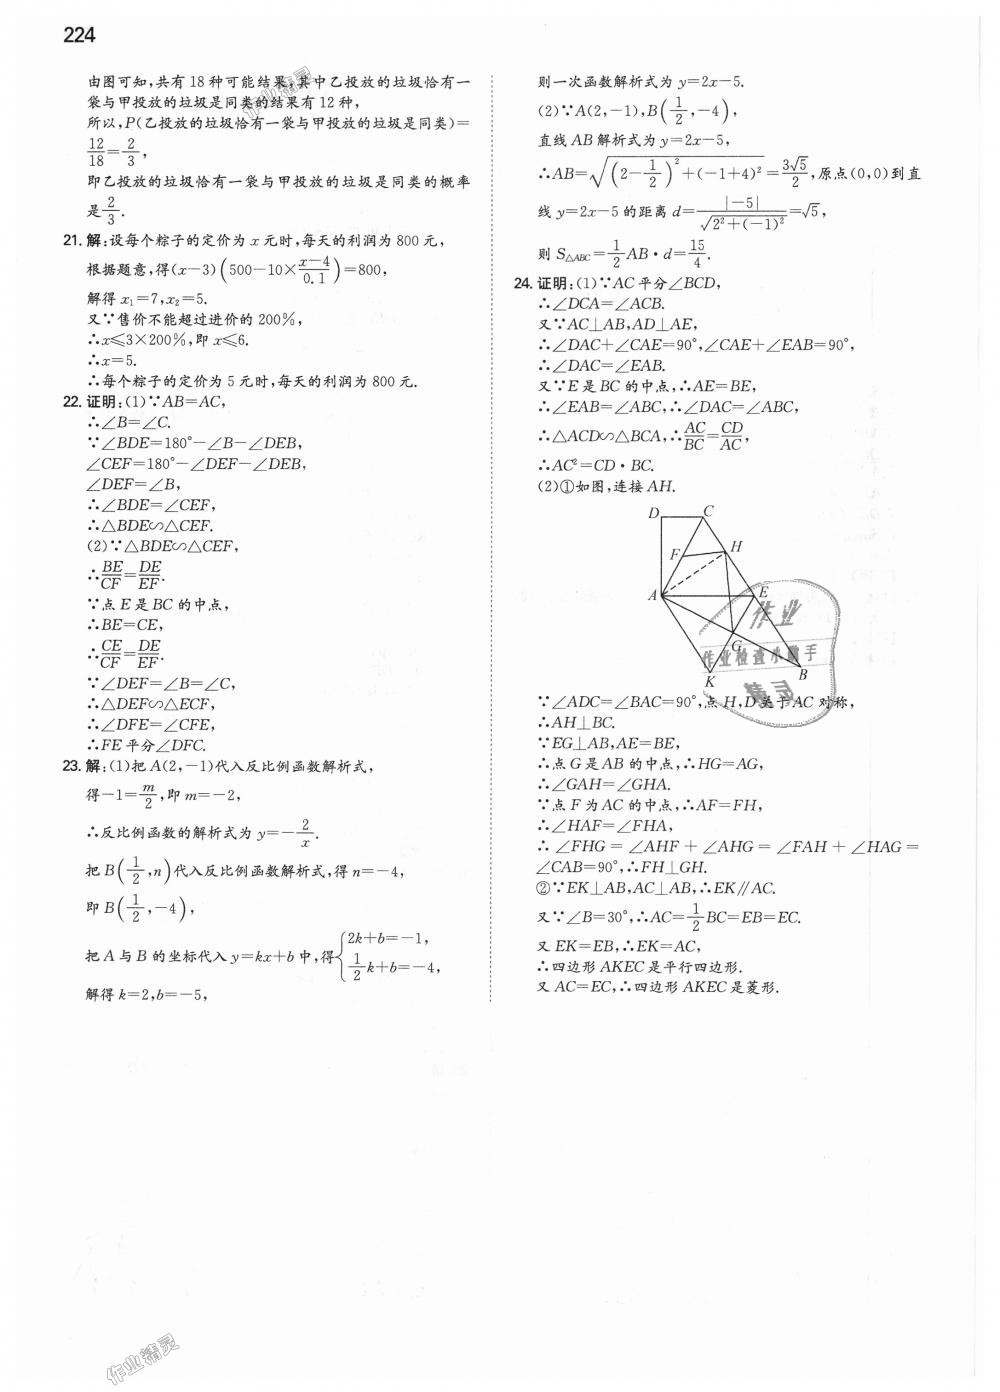 224
由图可知,共有18种可能结果,其中乙投放的垃圾恰有一
袋与甲投放的垃圾是同类的结果有12种,
所以,P(乙投放的垃圾恰有一袋与甲投放的垃圾是同类)=
12/18=2/3,
即乙投放的垃圾恰有一袋与甲投放的垃圾是同类的概率
是2/3.
21. 解:设每个粽子的定价为x元时,每天的利润为800元,
根据题意,得(x-3)(500-10×(x-4)/0.1)=800,
解得x₁=7,x₂=5.
又∵售价不能超过进价的200%,
∴x≤3×200%,即x≤6.
∴x=5.
∴每个粽子的定价为5元时,每天的利润为800元.
22. 证明:(1)∵AB=AC,
∴∠B=∠C.
∵∠BDE=180°-∠B-∠DEB,
∠CEF=180°-∠DEF-∠DEB,
∠DEF=∠B,
∴∠BDE=∠CEF,
∴△BDE∽△CEF.
(2)∵△BDE∽△CEF,
∴BE/CF=DE/EF.
∵点E是BC的中点,
∴BE=CE,
∴CE/CF=DE/EF.
∵∠DEF=∠B=∠C,
∴△DEF∽△ECF,
∴∠DFE=∠CFE,
∴FE平分∠DFC.
23. 解:(1)把A(2,-1)代入反比例函数解析式,
得-1=m/2,即m=-2,
∴反比例函数的解析式为y=-2/x.
把B(1/2,n)代入反比例函数解析式,得n=-4,
即B(1/2,-4),
把A与B的坐标代入y=kx+b中,得{2k+b=-1,
1/2k+b=-4,
解得k=2,b=-5,
则一次函数解析式为y=2x-5.
(2)∵A(2,-1),B(1/2,-4),
直线AB解析式为y=2x-5,
∴AB=√((2-1/2)²+(-1+4)²)=3√5/2,原点(0,0)到直
线y=2x-5的距离d=|-5|/√(2²+(-1)²)=√5,
则S△ABC=1/2AB·d=15/4.
24. 证明:(1)∵AC平分∠BCD,
∴∠DCA=∠ACB.
又∵AC⊥AB,AD⊥AE,
∴∠DAC+∠CAE=90°,∠CAE+∠EAB=90°,
∴∠DAC=∠EAB.
又∵E是BC的中点,∴AE=BE,
∴∠EAB=∠ABC,∴∠DAC=∠ABC,
∴△ACD∽△BCA,∴AC/BC=CD/AC,
∴AC²=CD·BC.
(2)①如图,连接AH.
D C
F H
A E
G
K B
∵∠ADC=∠BAC=90°,点H,D关于AC对称,
∴AH⊥BC.
∵EG⊥AB,AE=BE,
∴点G是AB的中点,∴HG=AG,
∴∠GAH=∠GHA.
∵点F为AC的中点,∴AF=FH,
∴∠HAF=∠FHA,
∴∠FHG=∠AHF+∠AHG=∠FAH+∠HAG=
∠CAB=90°,∴FH⊥GH.
②∵EK⊥AB,AC⊥AB,∴EK∥AC.
又∵∠B=30°,∴AC=1/2BC=EB=EC.
又EK=EB,∴EK=AC,
∴四边形AKEC是平行四边形.
又AC=EC,∴四边形AKEC是菱形.
作业精灵
作业
作业检查小助手
精灵
作业精灵